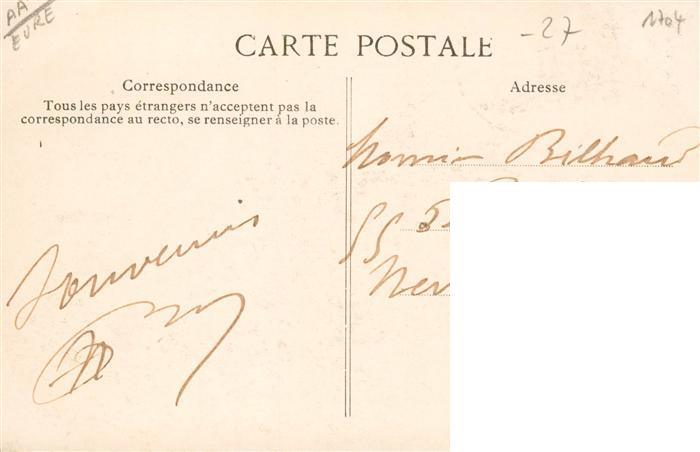 AA
EURE
-27
1704
CARTE POSTALE
Correspondance
Tous les pays étrangers n'acceptent pas la
correspondance au recto, se renseigner à la poste.
Adresse
Bilhaud
55
Souvenirs